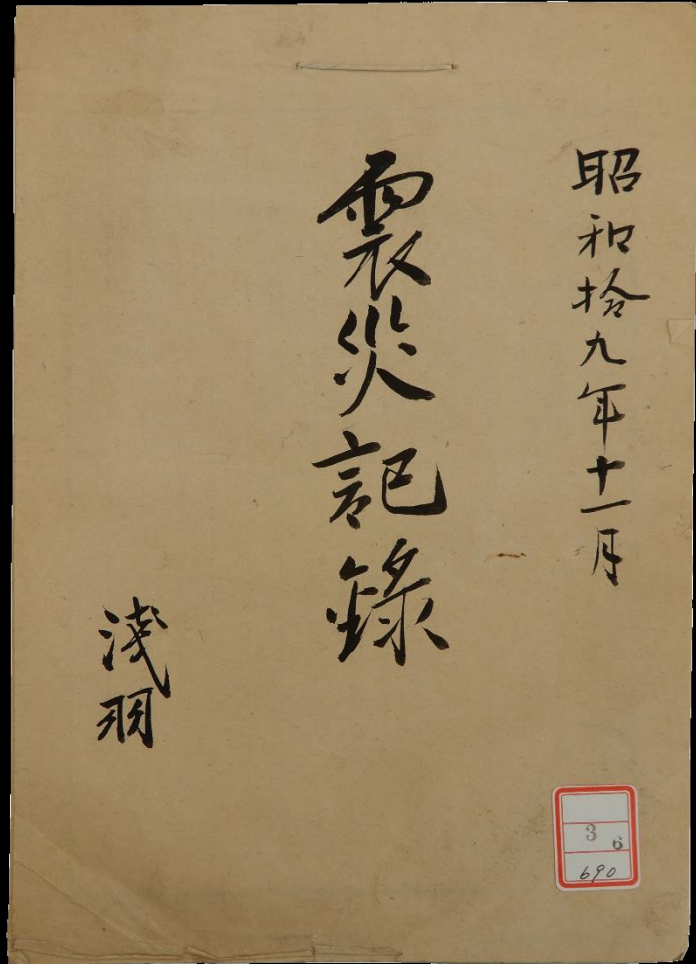 昭和拾九年十一月
震災記錄
淺羽
3 6
690